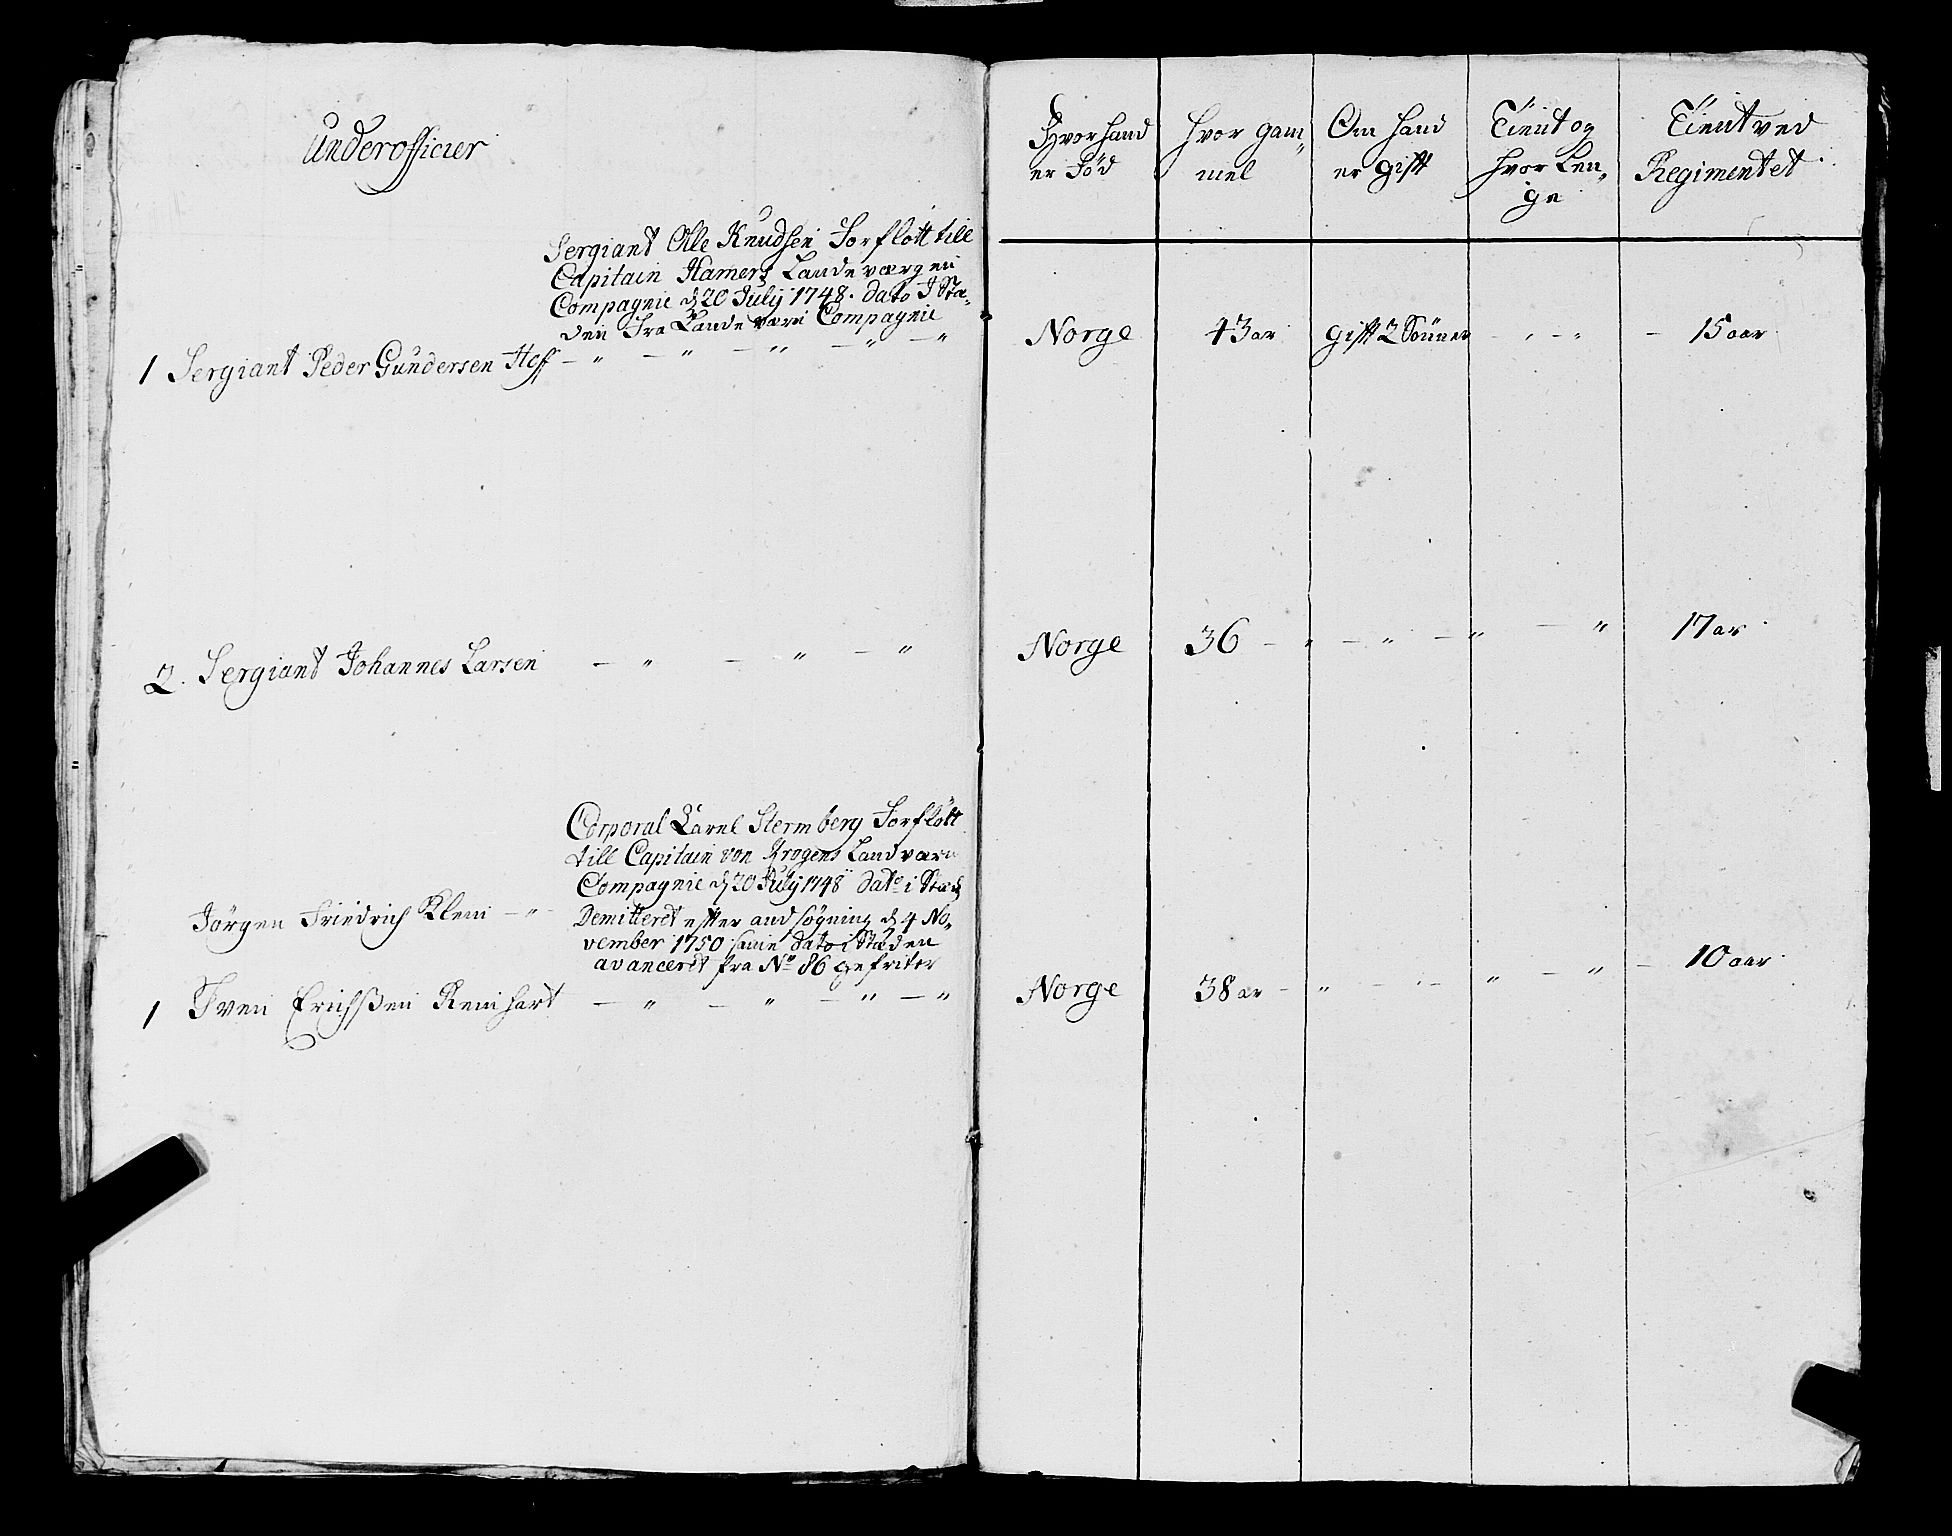 Underofficier
Sergiant Olle Knudsen Forflött till
Capitain Hamers Landeværgen
Compagnie d 20 July 1748. dato I Stæ-
den Fra Lande værn Compagnie
1 Sergiant Peder Gundersen Hoff — " — " — " — " — "
2. Sergiant Johannes Larsen — " — " — "
Corporal Karel Stermberg Forflött
till Capitain von Krogens Landværn
Compagnie d 20 July 1748 dato i Stæd
Jörgen Friedrich Klein — "
Demitteret efter and søgning d 4 No-
vember 1750 samme dato i Stæden
avanceret fra No 86 gefriter
1 Iven Erichßen Reinhart — " — " — " — "
Hvor hand er Föd
Hvor gam-mel
Om hand er gift
Tient og hvor Len-ge
Tient ved Regimentet
Norge 43 ar gift 2 Sönner — " — " — 15 aar
Norge 36 — " — " — " — " 17 ar
Norge 38 ar — " — " — " — " — 10 aar